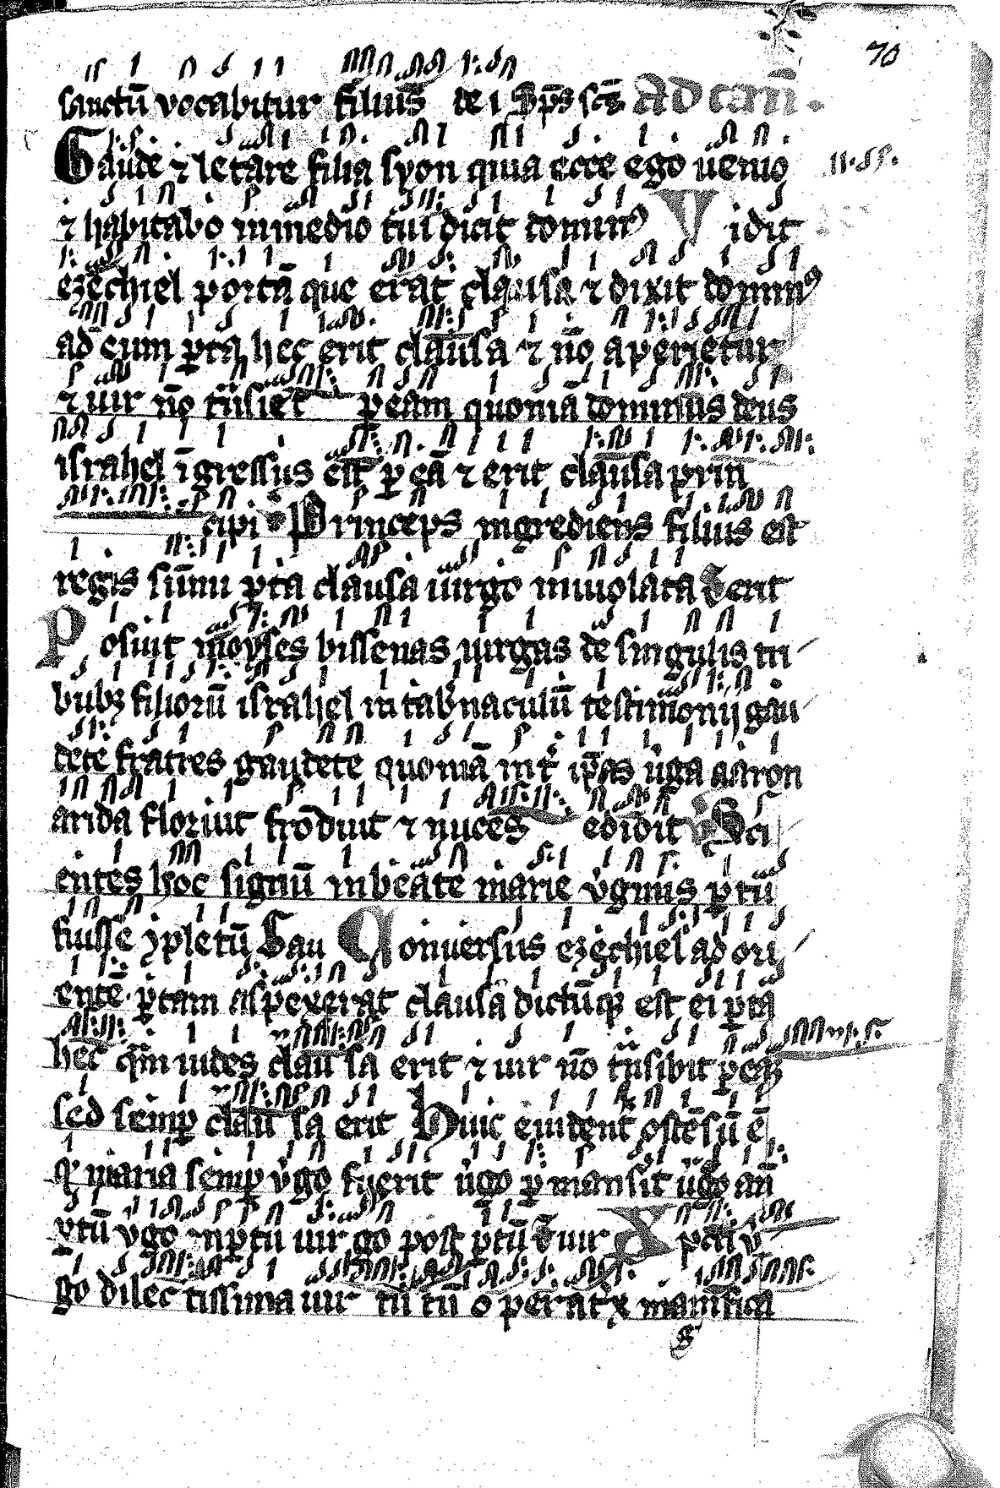 70
sanctū vocabitur filius de i Sp̄s scs Ad can̄.
Gaude ⁊ letare filia syon quia ecce ego uenio
⁊ habitabo in medio tui dicit domin⁹ Vidit
ezechiel portā que erat clausa ⁊ dixit domin⁹
ad eum porta hec erit clausa ⁊ nō aperietur
⁊ uir nō trāsiet p eam quoniā dominus deus
israhel īgressus est p eā ⁊ erit clausa prin
cipi Princeps ingrediens filius est
regis sūmi porta clausa uirgo inuiolata V erit
Posuit moyses bissenas uirgas de singulis tri
bubꝫ filiorū israhel in tab̄naculū testimonij gau
dete fratres gaudete quoniā int̄ ip̄as ūga aaron
arida floruit frōduit ⁊ nuces edidit V Sci
entes hoc signū in beate marie v̄ginis partū
fuisse ꝯpletū Gau Conuersus ezechiel ad ori
entē portam aspexerat clausā dictūqꝫ est ei porta
hec quā uides clau sa erit ⁊ uir nō trāsibit p eaꝫ
sed semp clau sa erit Huic euident̄ ostēsū ē
ꝙ maria semp v̄go fuerit ūgo pmansit ūgo an̄
ptū v̄go in ptu uirgo post ptū V uir Xpc̄ii v̄
go dilectissima uirtutū operatrix magnifica